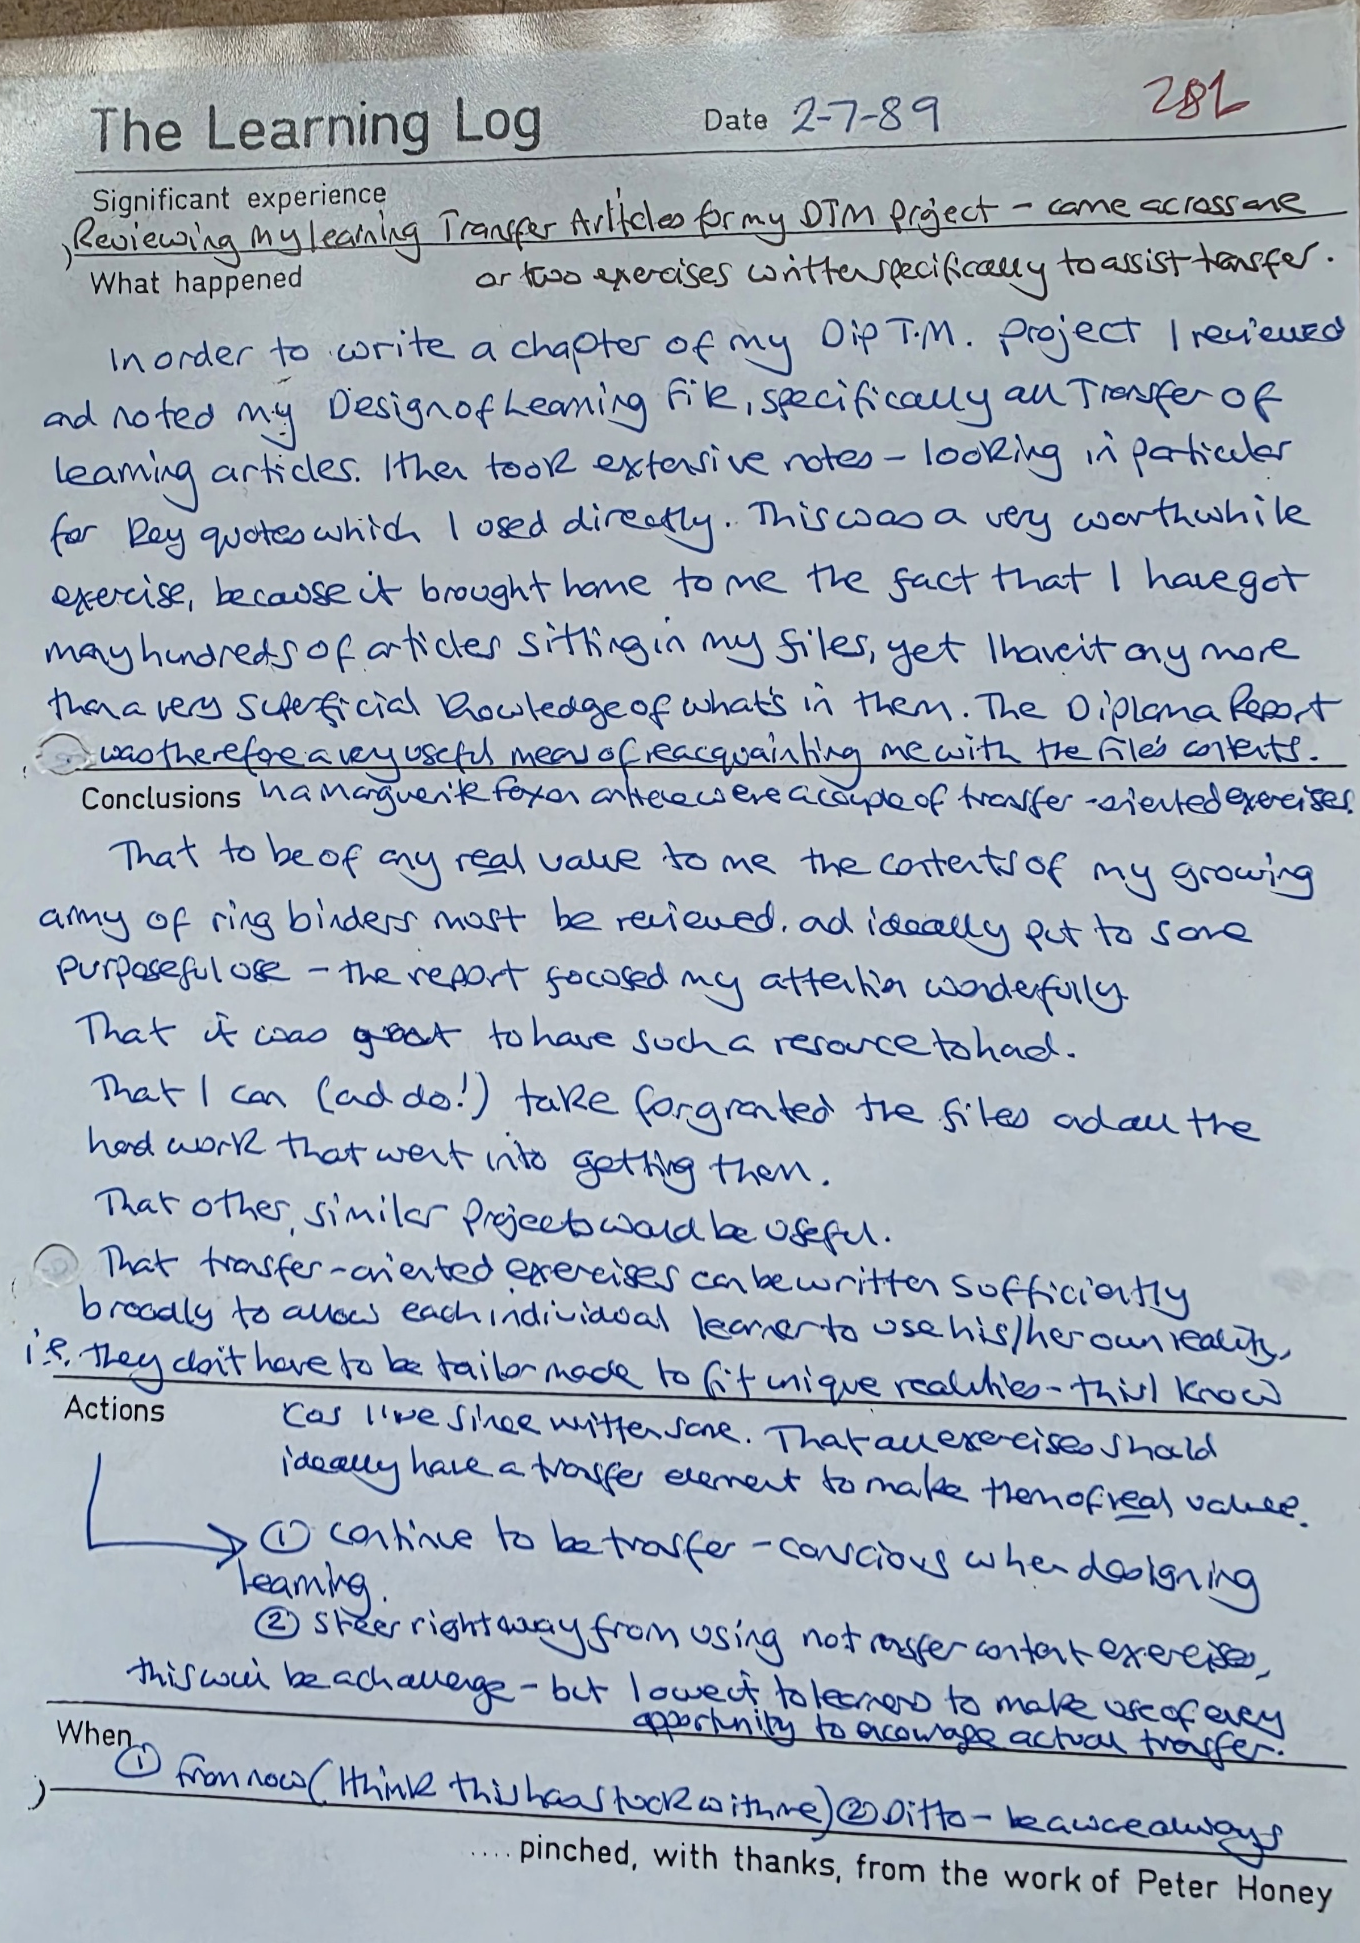 The Learning Log Date 2-7-89 282
Significant experience
Reviewing my learning Transfer Articles for my DTM Project - came across one
or two exercises written specifically to assist transfer.
What happened
In order to write a chapter of my Dip T.M. project I reviewed
and noted my Design of Learning File, specifically all Transfer of
learning articles. I then took extensive notes - looking in particular
for key quotes which I used directly. This was a very worthwhile
exercise, because it brought home to me the fact that I have got
many hundreds of articles sitting in my files, yet I haven't any more
than a very superficial knowledge of what's in them. The Diploma Report
was therefore a very useful means of reacquainting me with the file's contents.
Conclusions In a Marguerite Foxon article were a couple of transfer-oriented exercises.
That to be of any real value to me the contents of my growing
army of ring binders must be reviewed. and ideally put to some
purposeful use - the report focused my attention wonderfully.
That it was great to have such a resource to hand.
That I can (and do!) take for granted the files and all the
hard work that went into getting them.
That other, similar projects would be useful.
That transfer-oriented exercises can be written sufficiently
broadly to allow each individual learner to use his/her own reality,
i.e. they don't have to be tailor made to fit unique realities - this I know
Actions cos I've since written some. That all exercises should
ideally have a transfer element to make them of real value.
① continue to be transfer-conscious when designing
learning.
② Steer right away from using no transfer content exercises,
this will be a challenge - but I owe it to learners to make use of every
opportunity to encourage actual transfer.
When
① from now (I think this has stuck with me) ② Ditto - be aware always
.... pinched, with thanks, from the work of Peter Honey